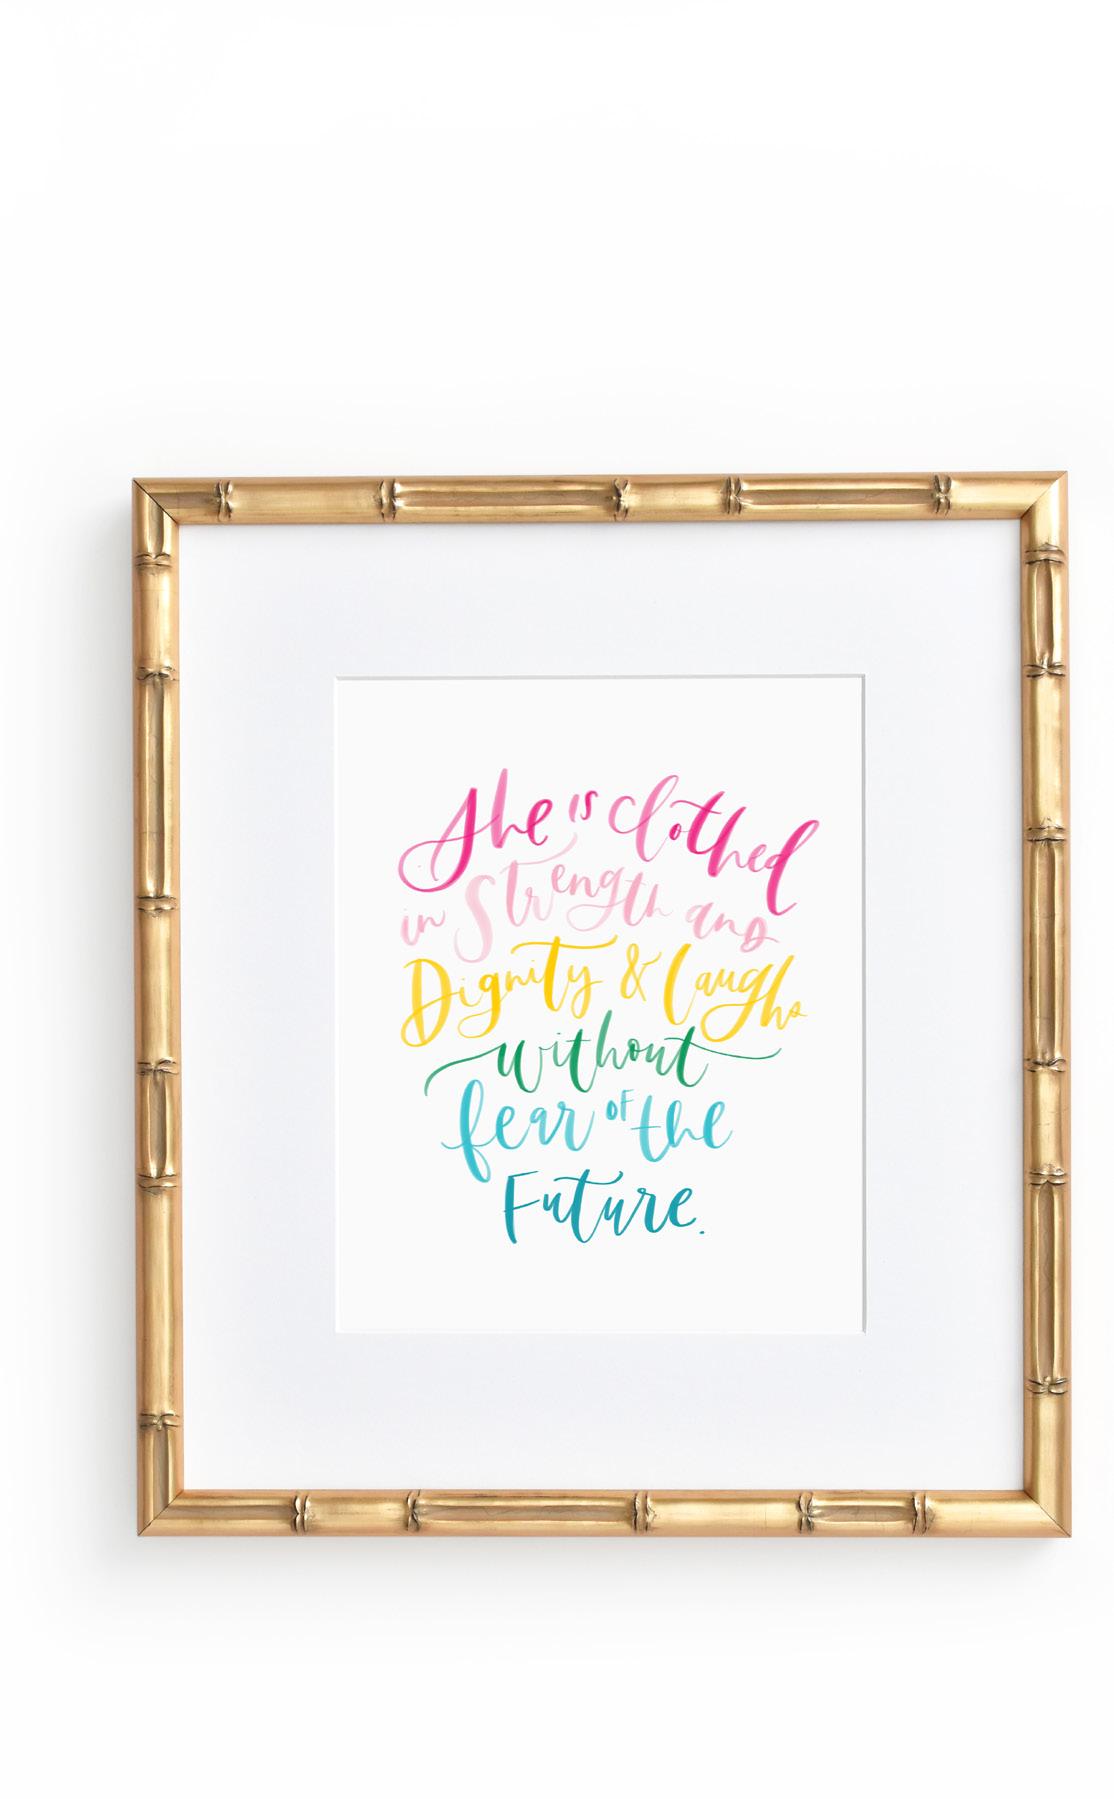 She is clothed
in Strength and
Dignity & laughs
without
fear OF the
Future.